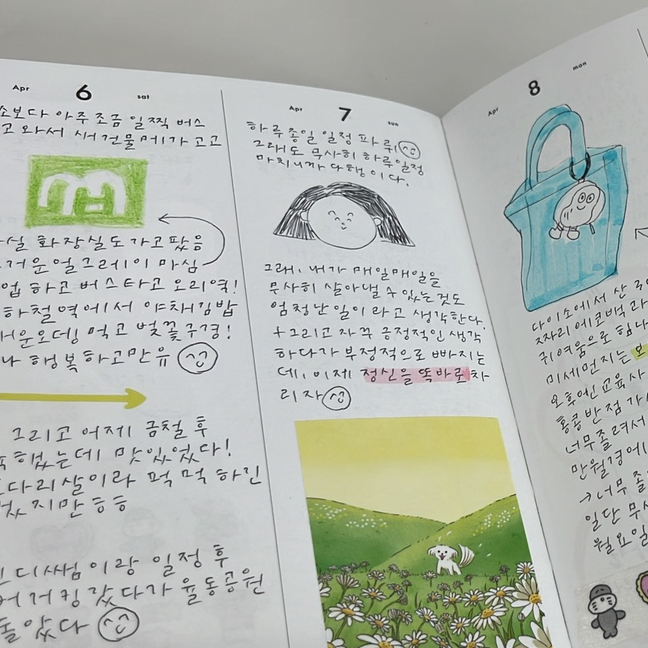 Apr 6 sat
소보다 아주 조금 일찍 버스
고 와서 새건물메가고고
화장실도 가고팠음
거운얼그레이 마심
업 하고 버스타고 오리역!
하철역에서 야채김밥
오뎅 먹고 벚꽃구경!
나 행복하고만유
그리고 어제 금철 후
했는데 맛있었다!
다리살이라 퍽퍽하긴
지만 ㅎㅎ
디쌤이랑 일정 후
거킹갔다가 율동공원
돌았다
Apr 7 sun
하루종일 일정 파루!
그래도 무사히 하루일정
마치니까 다행이다.
그래, 내가 매일매일을
무사히 살아낼 수 있는것도
엄청난 일이라고 생각한다.
+그리고 자꾸 긍정적인 생각
하다가 부정적으로 빠지는
데, 이제 정신을 똑바로 차
리자
Apr 8 mon
다이소에서 산
짜리 에코백
귀여움으로
미세먼지는
오후엔 교육사
홍콩반점
너무졸려서
만월경에
→너무졸
일단 무사
월요일